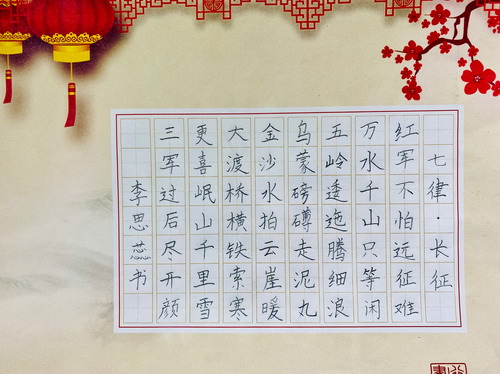 七律·长征
红军不怕远征难
万水千山只等闲
五岭逶迤腾细浪
乌蒙磅礴走泥丸
金沙水拍云崖暖
大渡桥横铁索寒
更喜岷山千里雪
三军过后尽开颜
李思蕊书